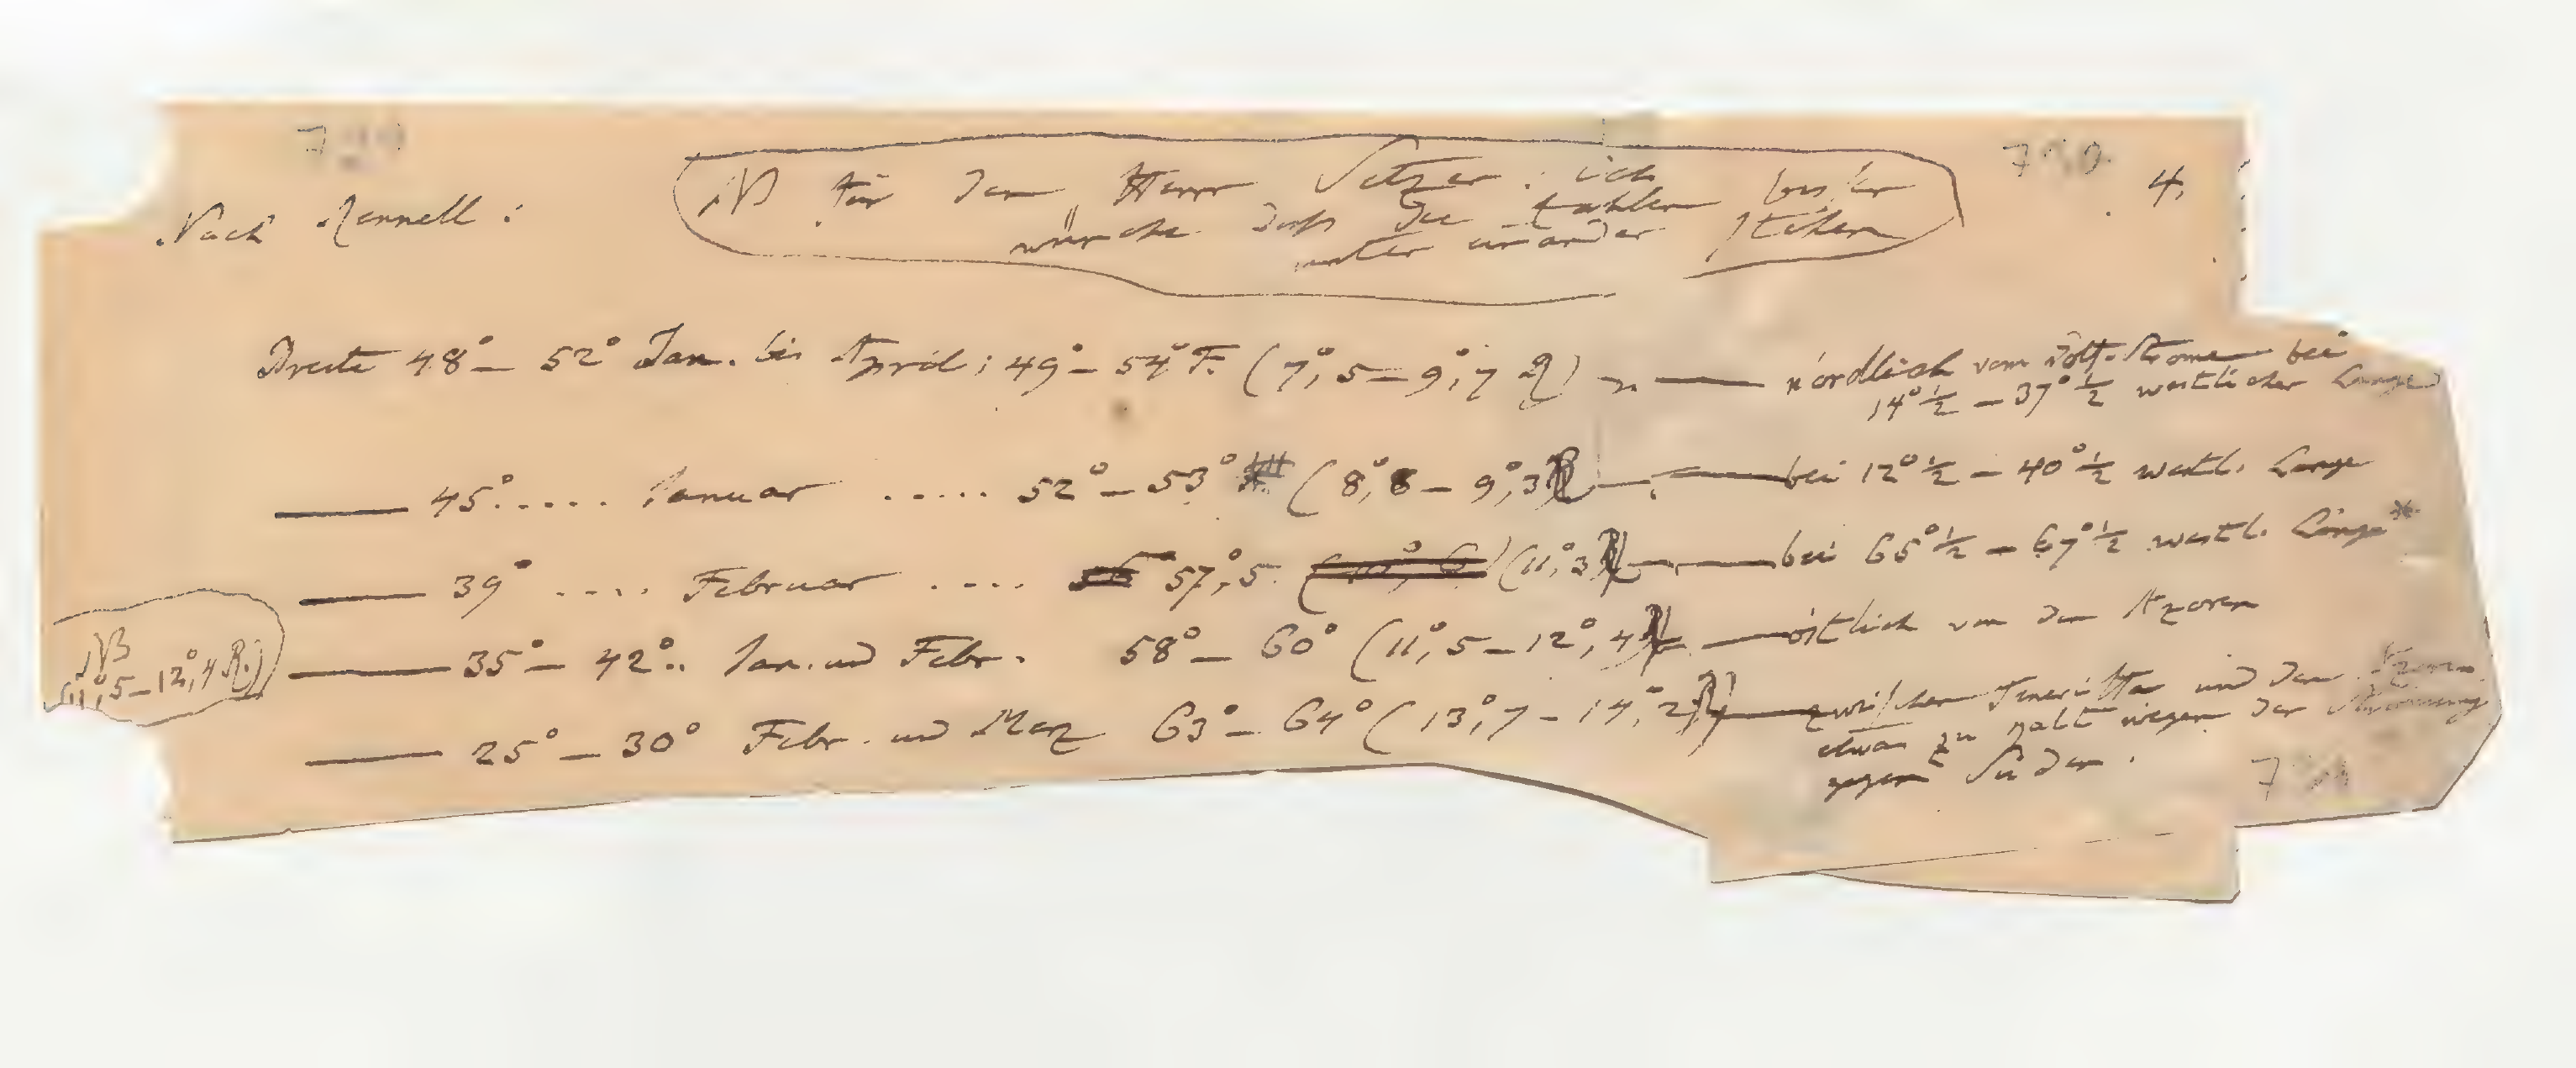 4.
NB für den Herrn Setzer: ich
wünsche daß die Zahlen besser
unter einander stehen
Nach Rennell:
Breite 48° – 52° Jan. bis April; 49° – 54° F. (7°,5 – 9°,7 R) — nördlich vom Golf-Strome bei
14°½ – 37°½ westlicher Länge
—— 45°..... Januar ..... 52° – 53° (8°,8 – 9°,3 R) —— bei 12°½ – 40°½ westl. Länge
—— 39° .... Februar .... 57°,5 (11°,3 R) —— bei 65°½ – 67°½ westl. Länge*
—— 35° – 42°.. Jan. und Febr. 58° – 60° (11°,5 – 12°,4 R) —— östlich von den Azoren
NB
(11°,5 – 12°,4 R.)
—— 25° – 30° Febr. und Merz 63° – 64° (13°,7 – 14°,2 R) —— zwischen Teneriffa und den Azoren
etwas zu kalt wegen der Strömung
gegen Süden.